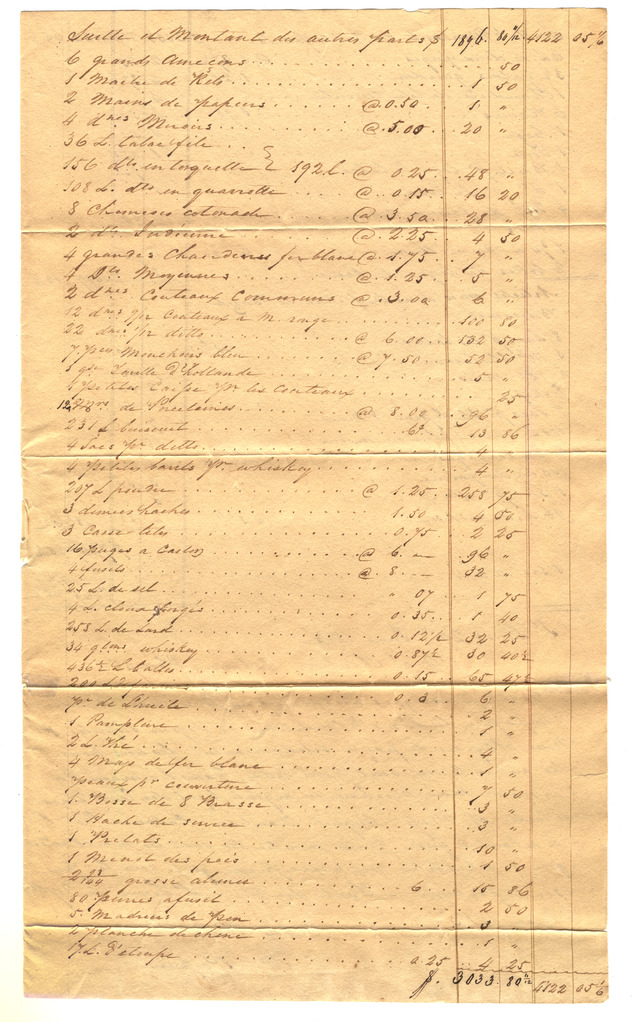 Suitte et Montant des autres parts $ 1896. 80 4122 05
6 grands Ameçons . . . 50
1 de 1 50
2 Mains de papiers @ 0.50 1 "
4 dnes Miroirs @ 5.00 20 "
36 L. tabac file
156 dto en torquette 192 L @ 0.25 48 "
108 L. dto en quarrotte @ 0.15 16 20
8 Chemeses cotonade @ 3.50 28 "
2 dto Indienne @ 2.25 4 50
4 grandes Chaudieres fer blanc @ 1.75 7 "
4 Dto Moyennes @ 1.25 5 "
2 dnes Couteaux Communs @ 3.00 6 "
12 dnes Couteaux a m. rouge 100 80
22 dnes ditto @ 6.00 132 50
7 Manchons bleu @ 7.50 52 50
1 d'hollande 5 "
1 petites Caisse pr les Couteaux 25
12 de Porcelaines @ 8.00 96 "
231 L biscuit 6 13 86
4 Sacs pr ditto 4 "
4 petites barils pr whiskey 4 "
207 L poudre @ 1.25 258 75
3 demies haches 1.50 4 50
3 Casse tetes 0.75 2 25
16 pieges a Castor @ 6 — 96 "
4 fusils @ 8 — 32 "
25 L. de sel " 07 1 75
4 L. cloux forges 0.35 1 40
258 L. de Lard 0.12½ 32 25
34 glons whiskey 0.87½ 30 40½
436½ L balles 0.15 65 47½
200 L 0.3 6 "
pr de 2 "
1 1 "
2 L. thé 4 "
4 Majs de fer blanc 1 "
Peaux pr couverture 7 50
1 Bosse de 8 Brasse 3 "
1 Hache de 3 "
1 Prelats 10 "
1 Minot des pois 1 50
2 grosse alenes 6 15 86
80 pierres a fusil 2 50
5 Madriers de Pin 3 "
4 planche de chene 1 "
17 L. d'etoupe 0.25 4 25
$. 3033 80 4122 05